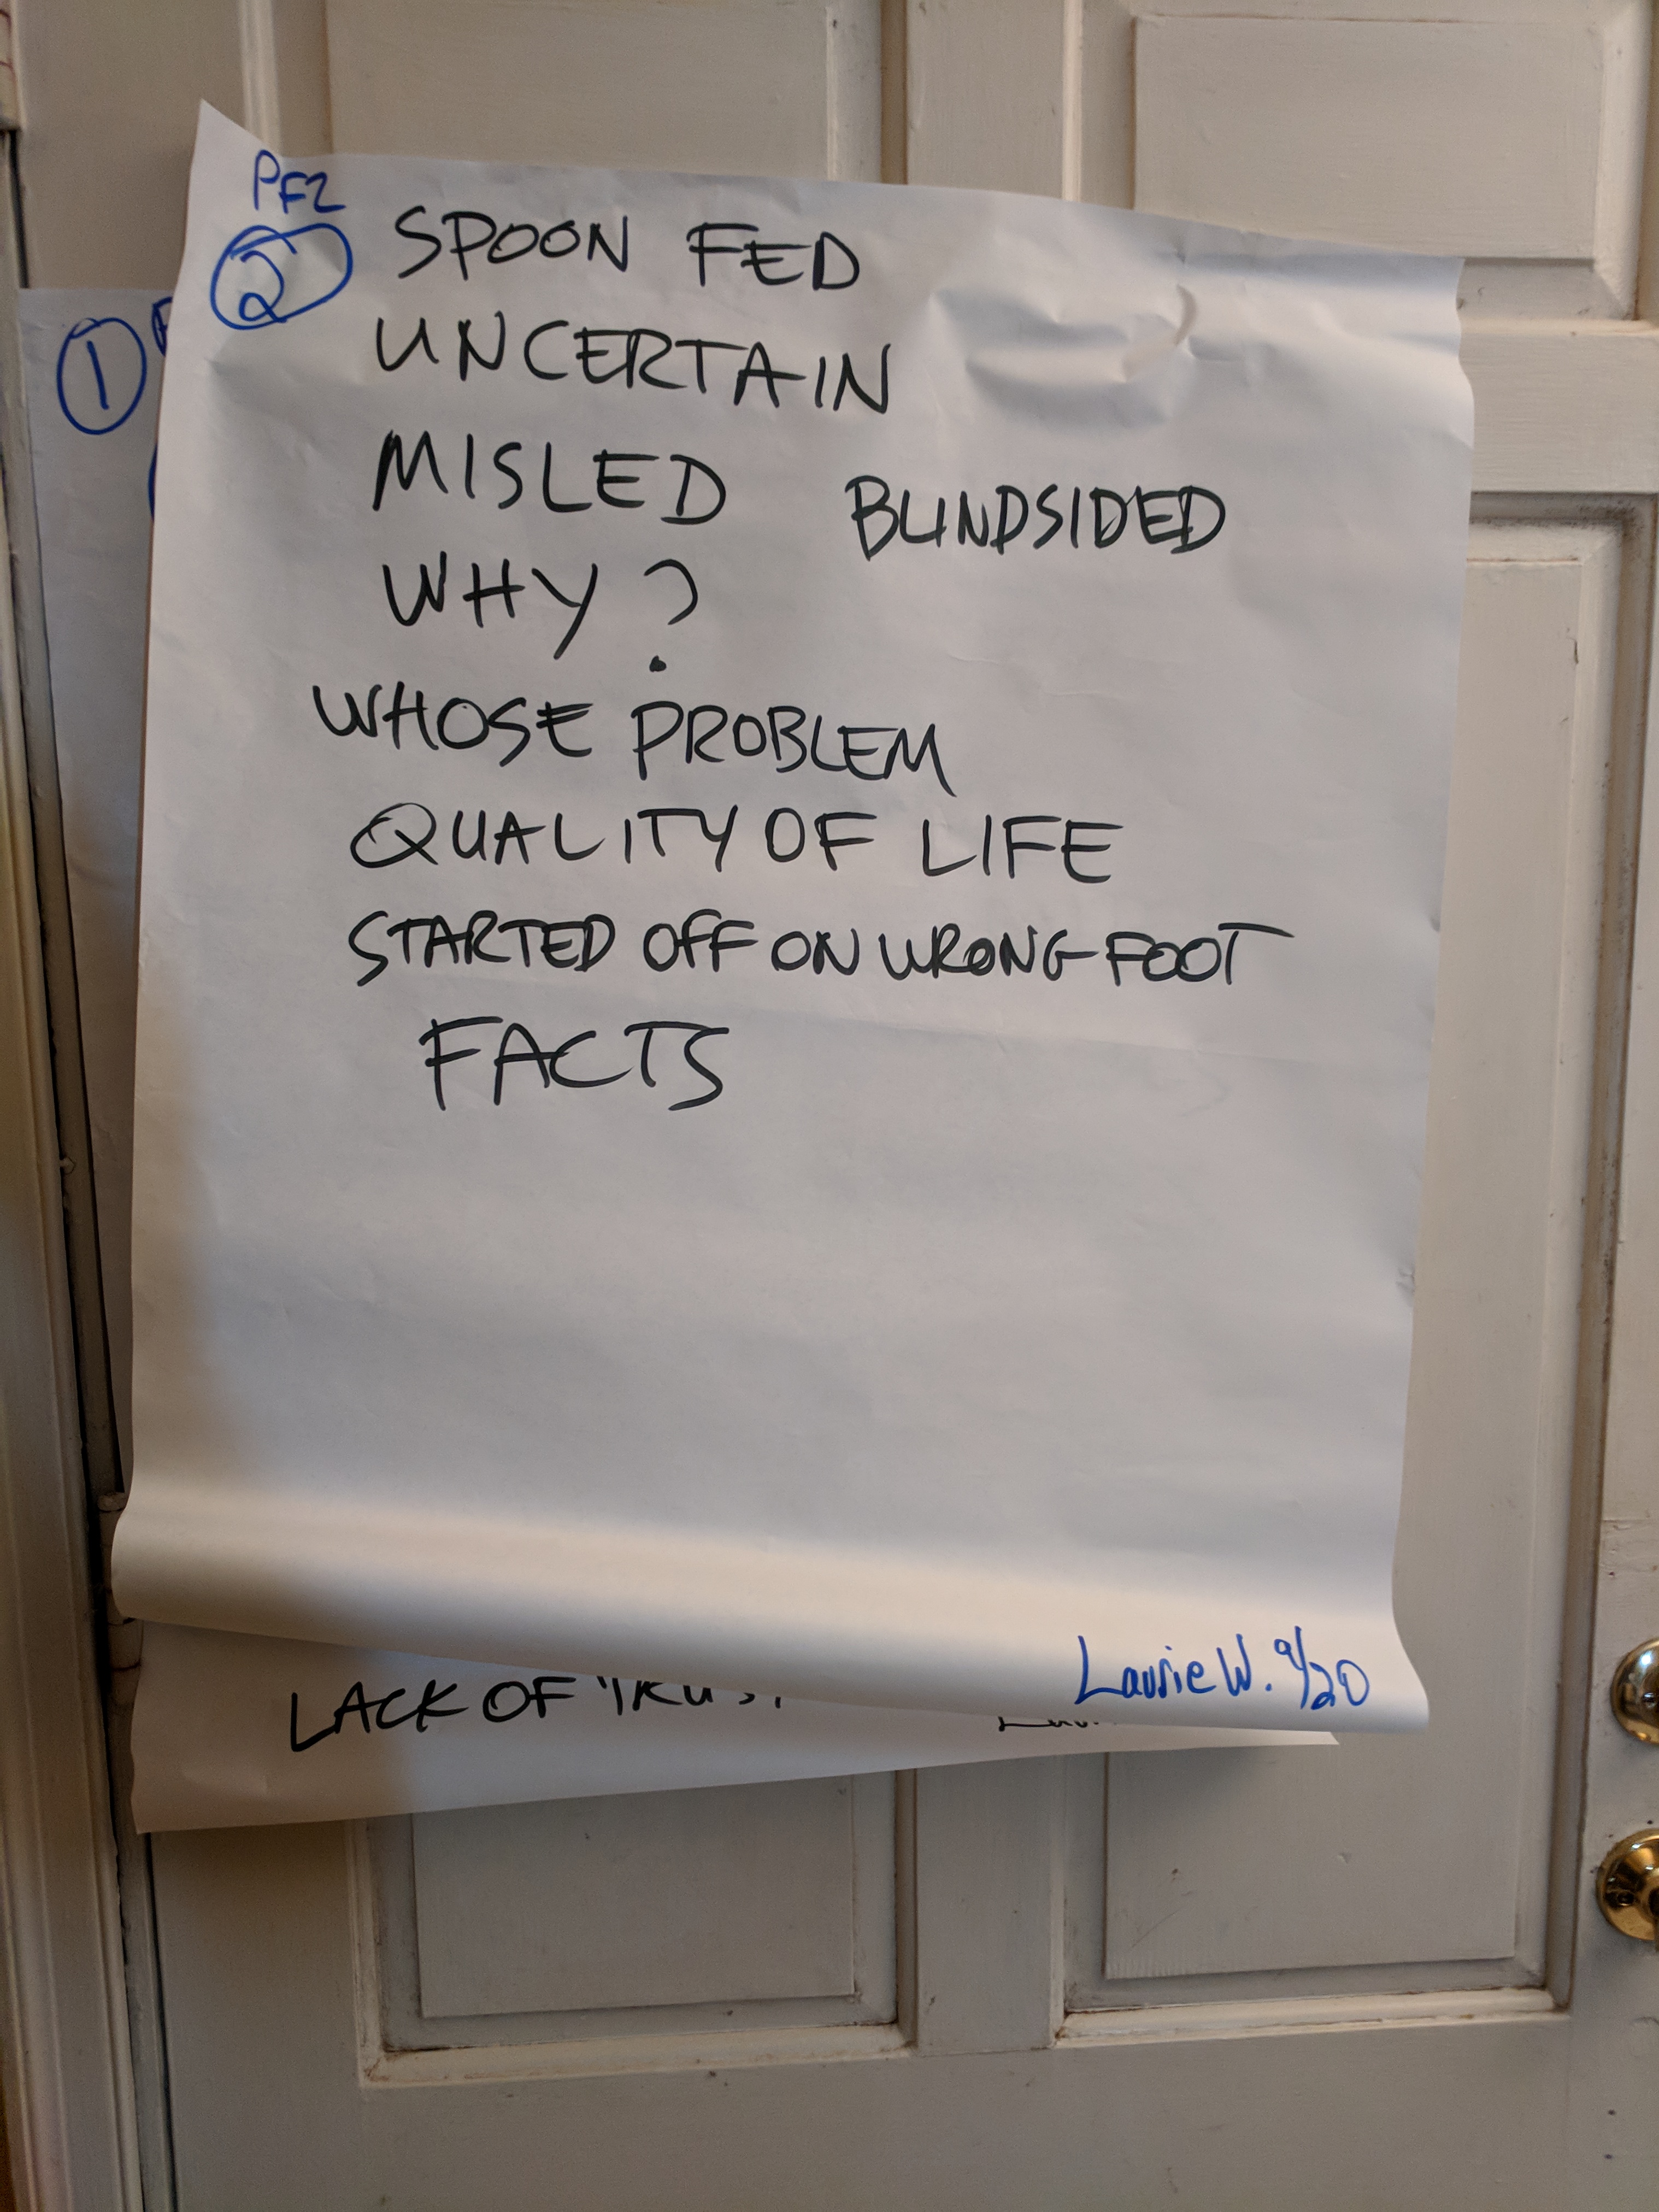 PF2
2
SPOON FED
UNCERTAIN
MISLED
BLINDSIDED
WHY?
WHOSE PROBLEM
QUALITY OF LIFE
STARTED OFF ON WRONG FOOT
FACTS
Laurie W. 9/20
1
LACK OF TRUST